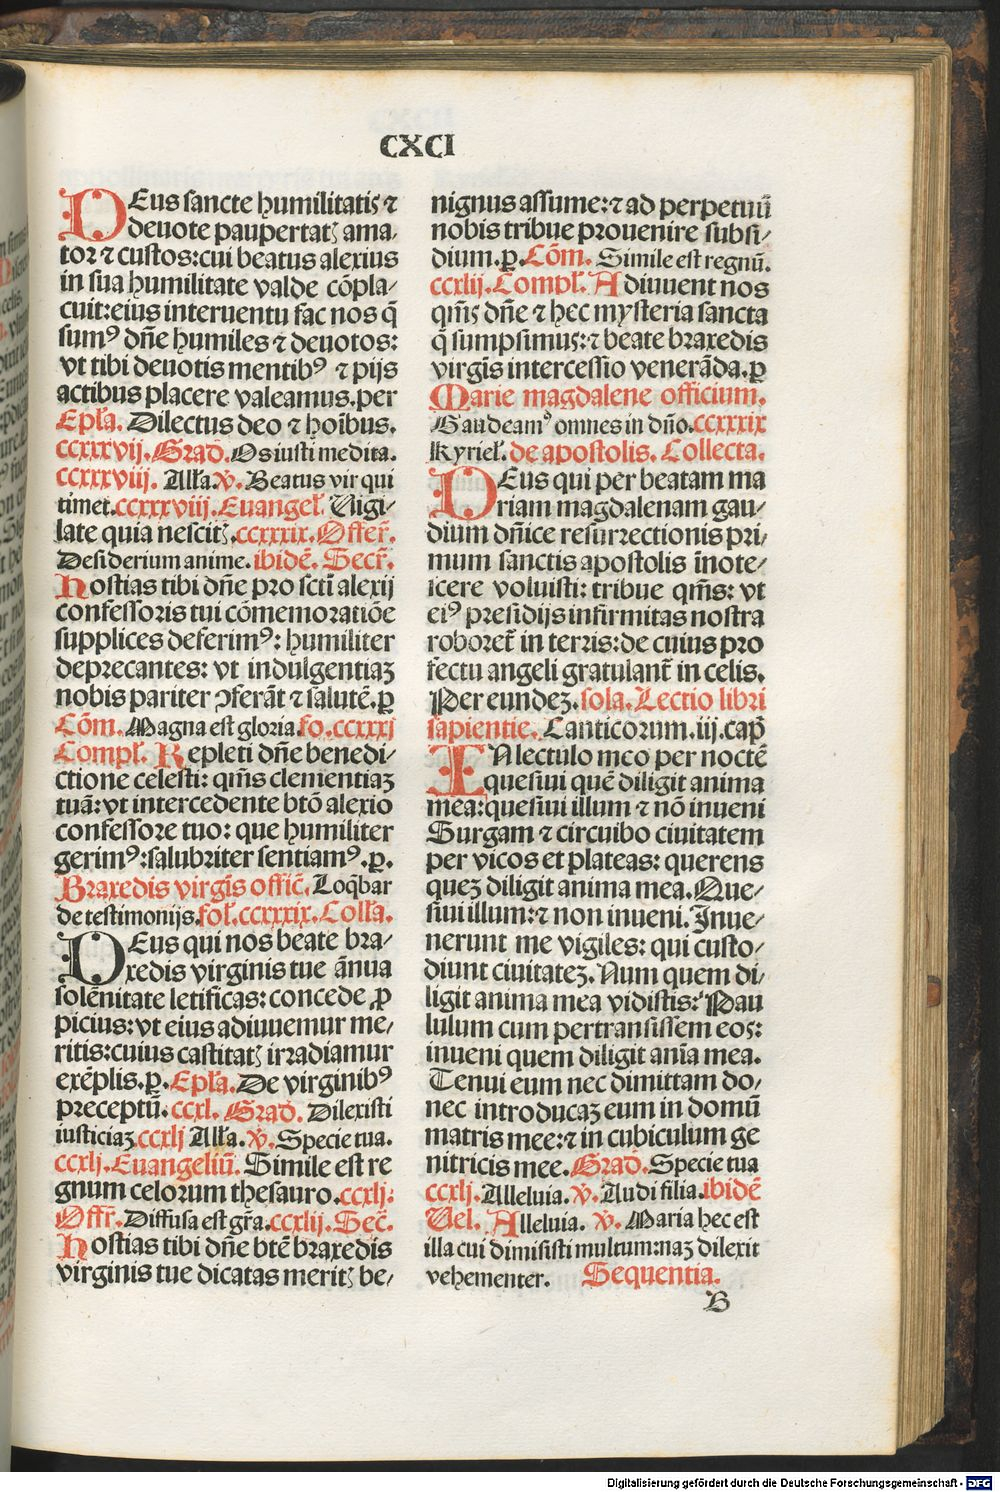 CXCI
DEus sancte humilitatis ⁊
deuote paupertatꝭ ama⸗
tor ⁊ custos:cui beatus alexius
in sua humilitate valde cōpla⸗
cuit:eius interuentu fac nos q̄
sumꝰ dn̄e humiles ⁊ deuotos:
vt tibi deuotis mentibꝰ ⁊ pijs
actibus placere valeamus.per
Epl̄a. Dilectus deo ⁊ hoībus.
ccxxxvij. Grad̄. Os iusti medita.
ccxxxviij. All̄a. ℣. Beatus vir qui
timet. ccxxxviij. Euangel̄. Uigi⸗
late quia nescitꝭ. ccxxxix. Offer̄.
Desiderium anime. ibidē. Secr̄.
Hostias tibi dn̄e pro sctī alexij
confessoris tui cōmemoratiōe
supplices deferimꝰ: humiliter
deprecantes: vt indulgentiaꝫ
nobis pariter ꝯferāt ⁊ salutē. ꝑ
Cōm. Magna est gloria. fo. ccxxxj
Compl̄. Repleti dn̄e benedi⸗
ctione celesti: qm̄s clementiaꝫ
tuā: vt intercedente btō alexio
confessore tuo: que humiliter
gerimꝰ:salubriter sentiamꝰ. ꝑ.
Braxedis virgīs offic̄. Loq̄bar
de testimonijs. fol̄. ccxxxix. Coll̄a.
DEus qui nos beate bra⸗
xedis virginis tue ānua
solēnitate letificas: concede ꝓ
picius: vt eius adiuuemur me⸗
ritis:cuius castitatꝭ irradiamur
exēplis. ꝑ. Epl̄a. De virginibꝰ
preceptū. ccxl. Grad. Dilexisti
iusticiaꝫ ccxlj All̄a. ℣. Specie tua.
ccxlj. Euangeliū. Simile est re
gnum celorum thesauro. ccxlj:
Offr̄. Diffusa est gr̄a. ccxlij. Sec̄.
Hostias tibi dn̄e btē braxedis
virginis tue dicatas meritꝭ be⸗
nignus assume: ⁊ ad perpetuū
nobis tribue prouenire subsi⸗
dium. ꝑ. Cōm. Simile est regnū.
ccxlij. Compl̄. Adiuuent nos
qm̄s dn̄e ⁊ hec mysteria sancta
q̄ sumpsimus: ⁊ beate braxedis
virgīs intercessio venerāda. ꝑ
Marie magdalene officium.
Gaudeamꝰ omnes in dn̄o. ccxxxix
Kyriel̄. de apostolis. Collecta.
DEus qui per beatam ma
riam magdalenam gau⸗
dium dn̄ice resurrectionis pri⸗
mum sanctis apostolis īnote⸗
scere voluisti: tribue qm̄s: vt
eiꝰ presidijs infirmitas nostra
roboret̄ in terris: de cuius pro
fectu angeli gratulant̄ in celis.
Per eundeꝫ. sola. Lectio libri
sapientie. Canticorum. iij. cap̄
IN lectulo meo per noctē
quesiui quē diligit anima
mea: quesiui illum ⁊ nō inueni
Surgam ⁊ circuibo ciuitatem
per vicos et plateas: querens
queꝫ diligit anima mea. Que⸗
siui illum: ⁊ non inueni. Inue⸗
nerunt me vigiles: qui custo⸗
diunt ciuitateꝫ. Num quem di⸗
ligit anima mea vidistis? Pau
lulum cum pertransissem eos:
inueni quem diligit anīa mea.
Tenui eum nec dimittam do⸗
nec introducaꝫ eum in domū
matris mee: ⁊ in cubiculum ge
nitricis mee. Grad̄. Specie tua
ccxlj. Alleluia. ℣. Audi filia. ibidē
Uel. Alleluia. ℣. Maria hec est
illa cui dimisisti multum: naꝫ dilexit
vehementer. Sequentia.
B
Digitalisierung gefördert durch die Deutsche Forschungsgemeinschaft - DFG